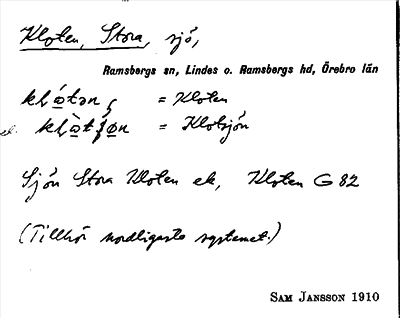 Kloten, Stora, sjö,
Ramsbergs sn, Lindes o. Ramsbergs hd, Örebro län
= Kloten
el. = Klotsjön
Sjön Stora Kloten ek, Kloten G 82
(Tillhör nordligaste systemet.)
SAM JANSSON 1910